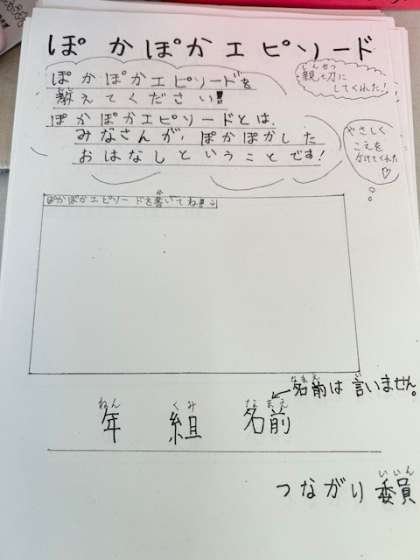 ぽかぽかエピソード
ぽかぽかエピソードを
教えてください!!
ぽかぽかエピソードとは、
みなさんが、ぽかぽかした
おはなしということです!
しんせつ
親切に
してくれた!
やさしく
こえを
かけてくれた
ぽかぽかエピソードを書いてね!!
なまえ い
名前は言いません。
ねん くみ なまえ
年 組 名前
いいん
つながり委員